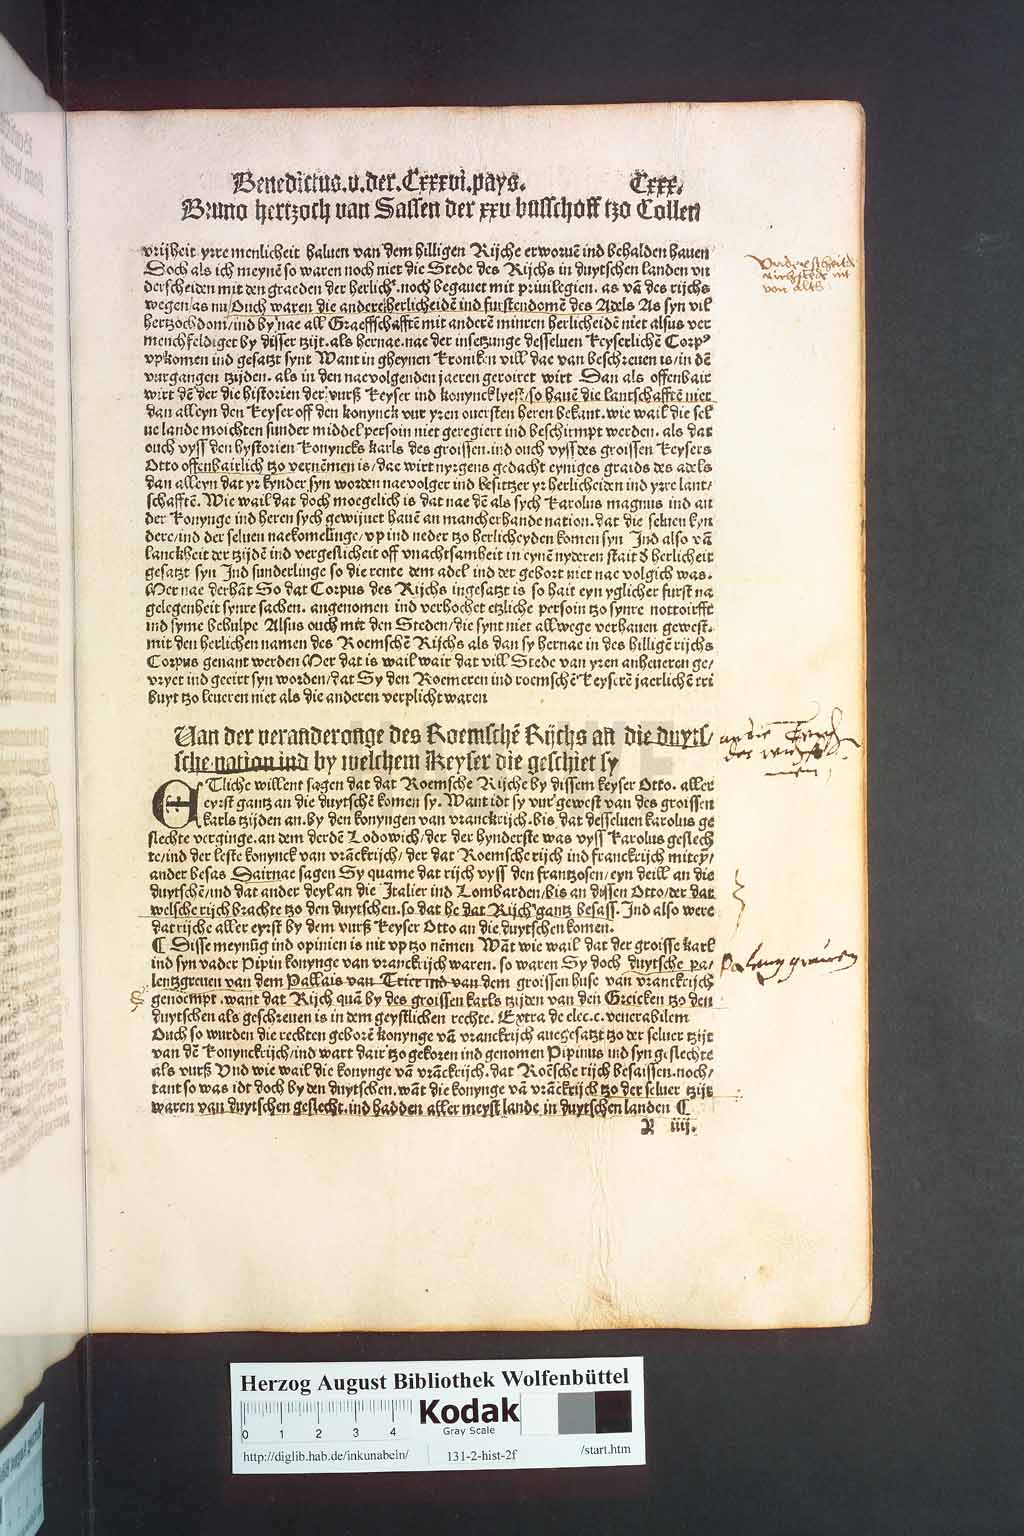 Benedictus.v.der.Cxxxvi.pays. Cxxx.
Bruno hertzoch van Sassen der xxv busschoff tzo Collen
vrijheit yrre menlicheit haluen van dem hilligen Rijche erworuē ind behalden hauen
Doch als ich meynē so waren noch niet die Stede des Rijchs in duytschen landen vn
derscheiden mit den graeden der herlichꝭ. noch begauet mit priuilegien. as vā des rijchs
wegen/as nu/Ouch waren die andere herlicheidē ind furstendomē des Adels As syn vil
hertzochdom/ind by nae all Graeffschafftē mit anderē minren herlicheidē niet alsus ver
menchfeldiget by disser tzijt.als hernae.nae der insetzunge desseluen Keyserlichē Corpꝰ
vpkomen ind gesatzt synt Want in gheynen Kroniken vill dae van beschreuen is/in dē
vurgangen tzijden. als in den naevolgenden jaeren geroiret wirt Dan als offenbair
wirt dē der die historien der vurß Keyser ind konynck lyest/so hauē die lantschafftē niet
dan alleyn den Keyser off den konynck vur yren ouersten heren bekant. wie wail die sel
ue lande moichten sunder middel persoin niet geregiert ind beschirmpt werden. als dat
ouch vyss den hystorien Konyncks karls des groissen. ind ouch vyss des groissen Keysers
Otto offenbairlich tzo vernēmen is/dae wirt nyrgens gedacht eyniges graids des adels
dan alleyn dat yr kynder syn worden naevolger ind besittzer yr herlicheiden ind yrre lant/
schafftē. Wie wail dat doch moegelich is dat nae dē als sych Karolus magnus ind an
der Konynge ind heren sych gewijuet hauē an mancherhande nation. dat die seluen kyn
dere/ind der seluen naekomelinge/vp ind neder tzo herlicheyden komen syn Ind also vā
lanckheit der tzijdē ind vergeslicheit off vnachtsamheit in eynē nyderen stait d̕ herlicheit
gesatzt syn Ind sunderlinge so die rente dem adel ind der gebort niet nae volgich was.
Mer nae derhāt So dat Corpus des Rijchs ingesatzt is so hait eyn yglicher furst na
gelegenheit synre sachen. angenomen ind verhochet etzliche persoin tzo synre nottoirfft
ind syme behulpe Alsus ouch mit den Steden/die synt niet allwege verhauen gewest.
mit den herlichen namen des Roemschē Rijchs als dan sy hernae in des hilligē rijchs
Corpus genant werden Mer dat is wail wair dat vill Stede van yren anheueren ge/
vryet ind geeirt syn worden/dat Sy den Roemeren ind roemschē Keyserē jaerlichē tri
buyt tzo leueren niet als die anderen verplicht waren
Van der veranderonge des Roemschē Rijchs an die duyts/
sche nation ind by welchem Keyser die geschiet sy
ETliche willent sagen dat dat Roemsche Rijche by dissem keyser Otto. aller
eyrst gantz an die duytschē komen sy. Want idt sy vur gewest van des groissen
karls tzijden an. by den konyngen van vranckrijch. bis dat desseluen karolus ge
slechte verginge. an dem derdē Lodowich/der der hynderste was vyss Karolus geslech
te/ind der leste konynck van vrāckrijch/der dat Roemsche rijch ind franckrijch mitey/
ander besas Dairnae sagen Sy quame dat rijch vyss den frantzosen/eyn deill an die
duytschē/ind dat ander deyl an die Italier ind Lombarden/bis an dissen Otto/der dat
welsche rijch brachte tzo den duytschen. so dat he dat Rijch gantz besass. Ind also were
dat rijche aller eyrst by dem vurß Keyser Otto an die duytschen komen.
¶ Disse meynūg ind opinien is nit vp tzo nēmen Wāt wie wail dat der groisse karl
ind syn vader Pipin konynge van vranckrijch waren. so waren Sy doch duytsche pa/
lentzgreuen van dem Pallais van Trier ind van dem groissen huse van vranckrijch
genoempt. want dat Rijch quā by des groissen karls tzijden van den Greicken tzo den
duytschen als geschreuen is in dem geystlichen rechte. Extra de elec.c.venerabilem
Ouch so wurden die rechten geborē konynge vā vranckrijch auegesatzt tzo der seluer tzijt
van dē Konynckrijch/ind wart dair tzo gekoren ind genomen Pipinus ind syn geslechte
als vurß Vnd wie wail die konynge vā vrāckrijch. dat Roēsche rijch besaissen. noch/
tant so was idt doch by den duytschen. wāt die konynge vā vrāckrijch tzo der seluer tzijt
waren van duytschen geslecht. ind hadden aller meyst lande in duytschen landen ¶
R iiij.
von alts
Palenzgrauen
Herzog August Bibliothek Wolfenbüttel
0 1 2 3 4
Kodak
Gray Scale
http://diglib.hab.de/inkunabeln/ 131-2-hist-2f /start.htm